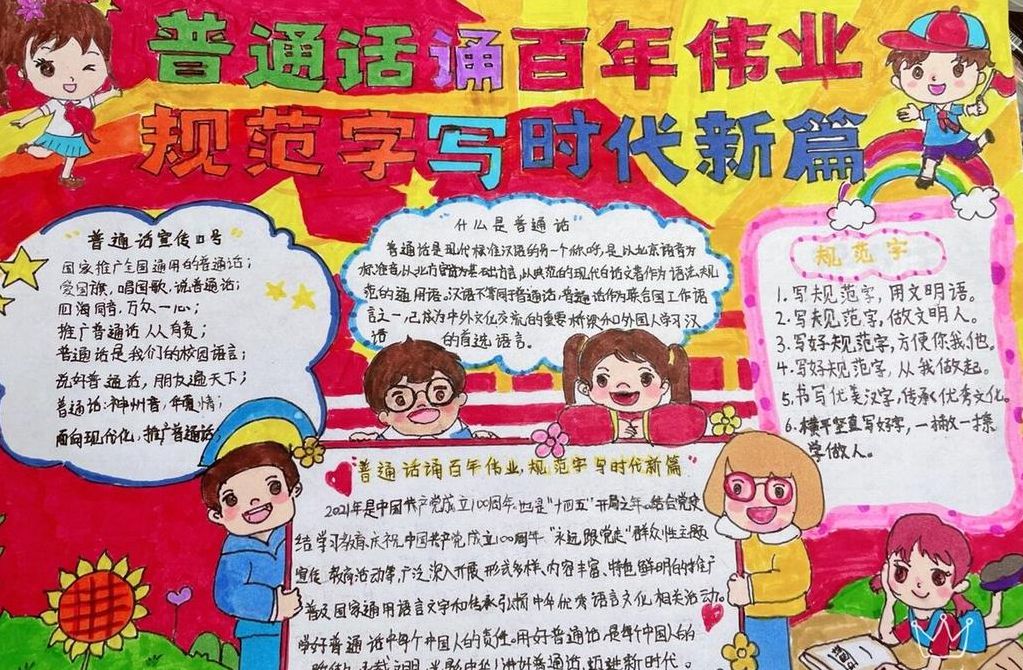 普通话诵百年伟业
规范字写时代新篇
"普通话宣传口号"
国家推广全国通用的普通话；
爱国旗，唱国歌，说普通话；
四海同音，万众一心；
推广普通话人人有责；
普通话是我们的校园语言；
说好普通话，朋友遍天下；
普通话：神州音，华夏情；
面向现代化，推广普通话
"什么是普通话"
普通话是现代标准汉语的另一个称呼，是以北京语音为
标准音，以北方官话为基础方言，以典范的现代白话文著作为语法规
范的通用语。汉语不等同于普通话，普通话作为联合国工作语
言之一，已成为中外文化交流的重要桥梁和外国人学习汉
语的首选语言。
规范字
1.写规范字，用文明语。
2.写规范字，做文明人。
3.写好规范字，方便你我他。
4.写好规范字，从我做起。
5.书写优美汉字，传承优秀文化。
6.横平竖直写好字，一撇一捺
学做人。
"普通话诵百年伟业，规范字写时代新篇"
2021年是中国共产党成立100周年，也是"十四五"开局之年。结合党史
结学习教育庆祝中国共产党成立100周年"永远跟党走"群众性主题
宣传教育活动等，广泛深入开展形式多样、内容丰富、特色鲜明的推广
普及国家通用语言文字和传承弘扬中华优秀语言文化相关活动。
学好普通话中每个中国人的责任。用好普通话是每个中国人的
讲好普通话，迈进新时代。